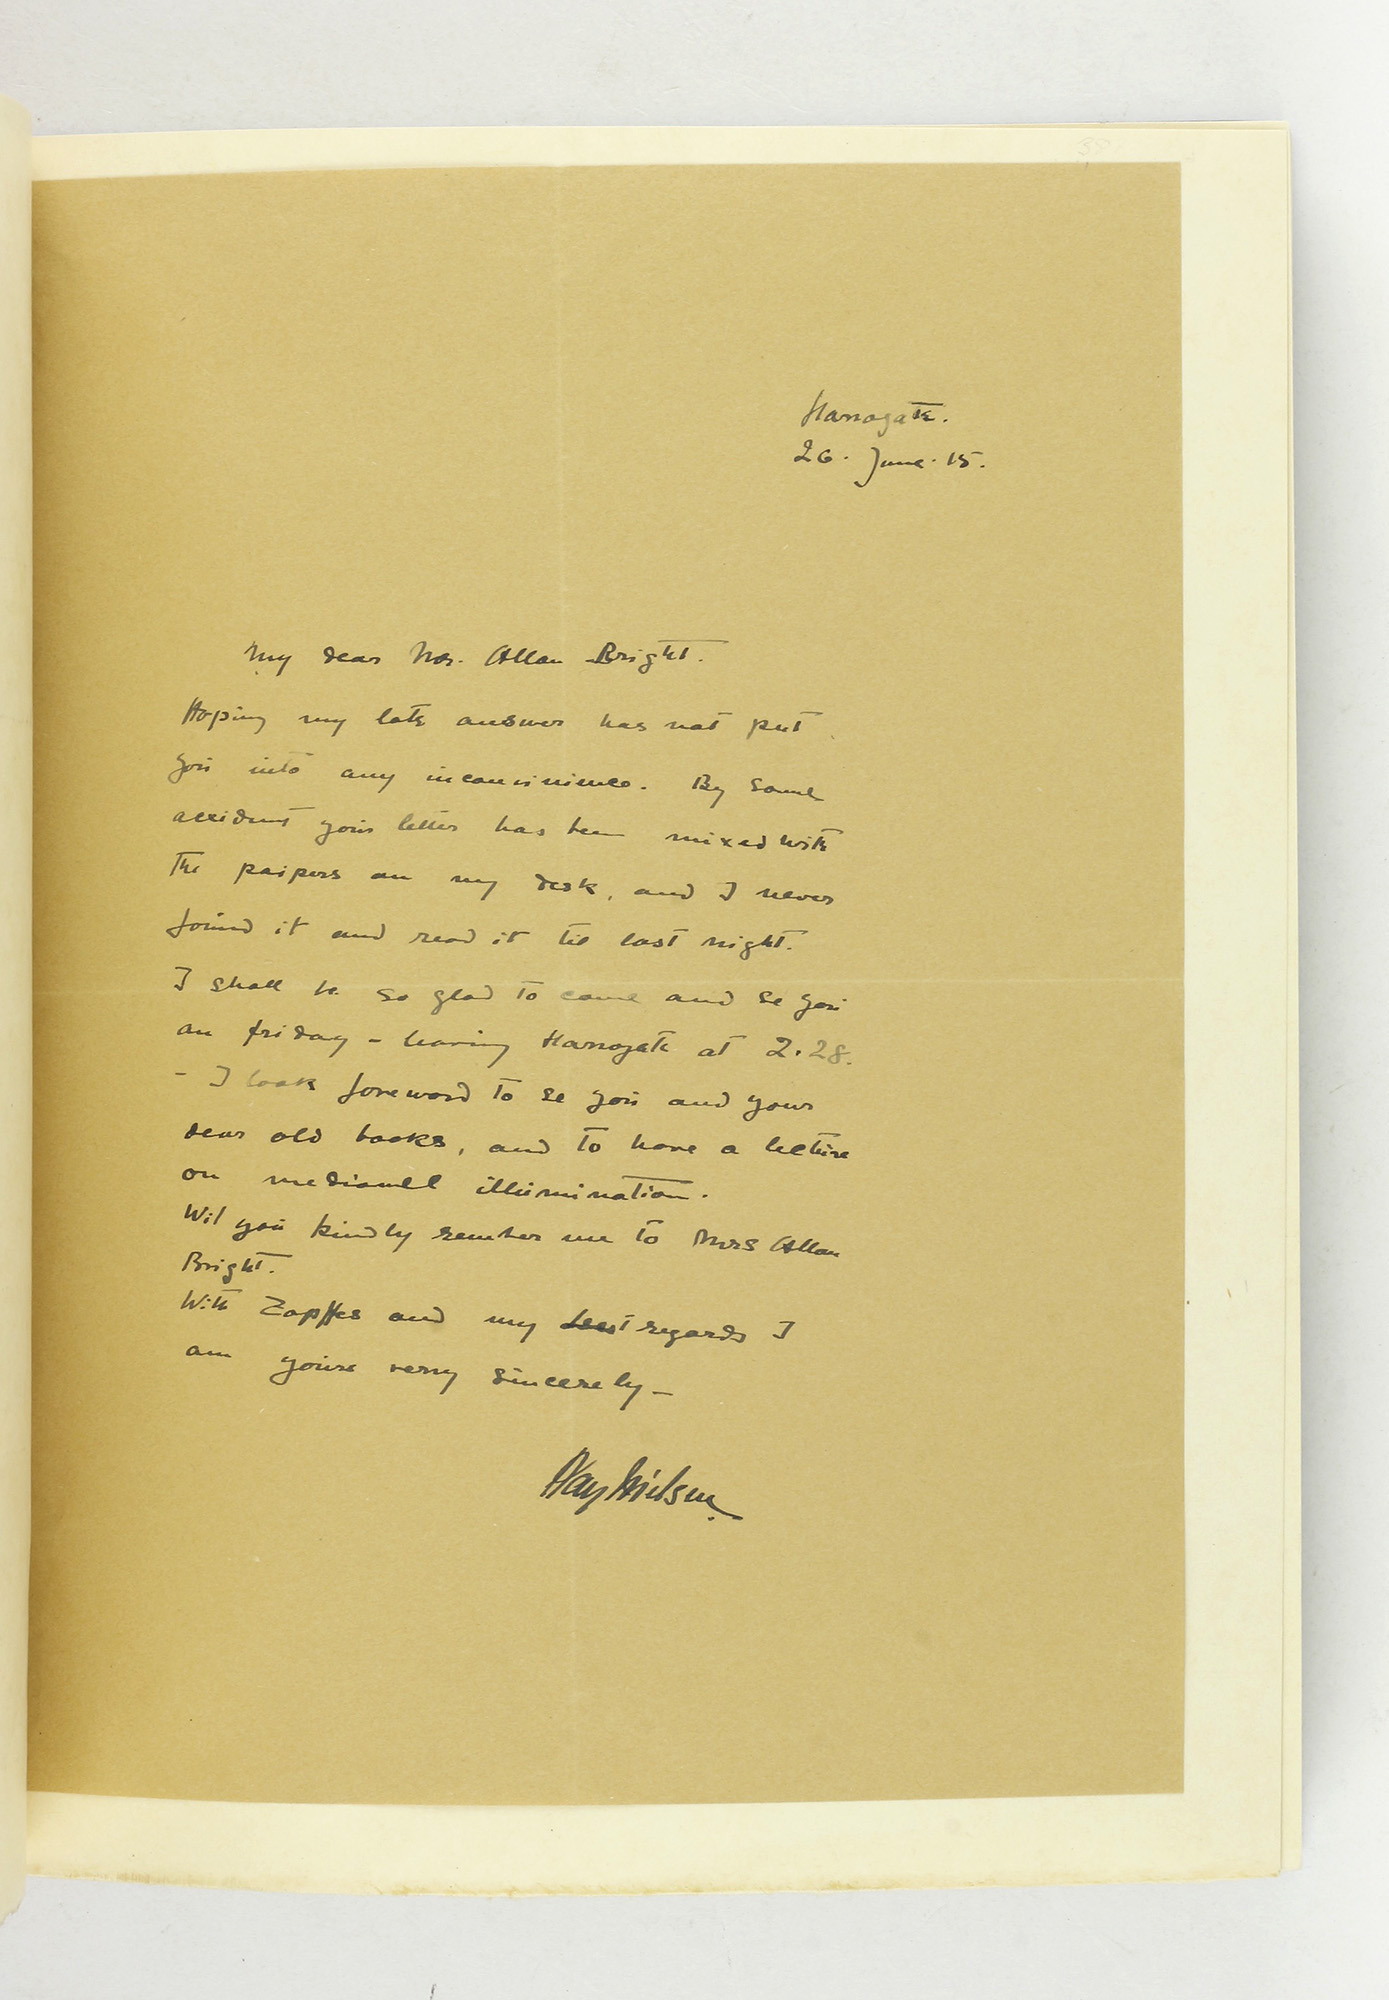 Harrogate.
26. June. 15.
My dear Mr. Allan Bright.
Hoping my late answer has not put
you into any inconvinience. By some
accident your letter has been mixed with
the paipers on my desk, and I never
found it and read it til last night.
I shall be so glad to come and se you
on friday - leaving Harrogate at 2.28.
- I look foreword to se you and your
dear old books, and to have a lecture
on mediavell illumination.
Wil you kindly rember me to Mrs Allan
Bright.
With Zopffes and my best regards I
am youre verry sincerely -
Kay Nielsen.